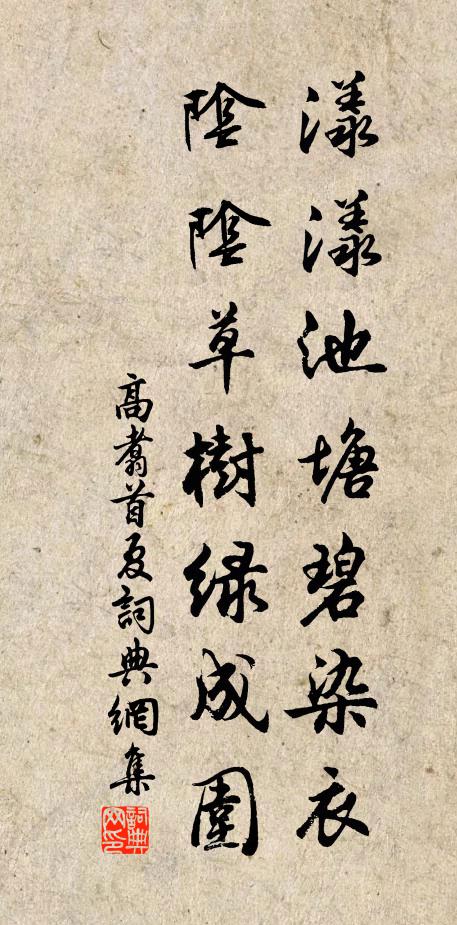 漾漾池塘碧染衣
陰陰草樹綠成圍
高翥首夏詞典網集
詞典网印